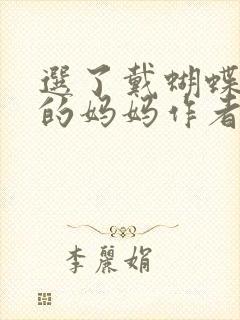 選了戴蝴蝶
的妈妈作者
李麗娟